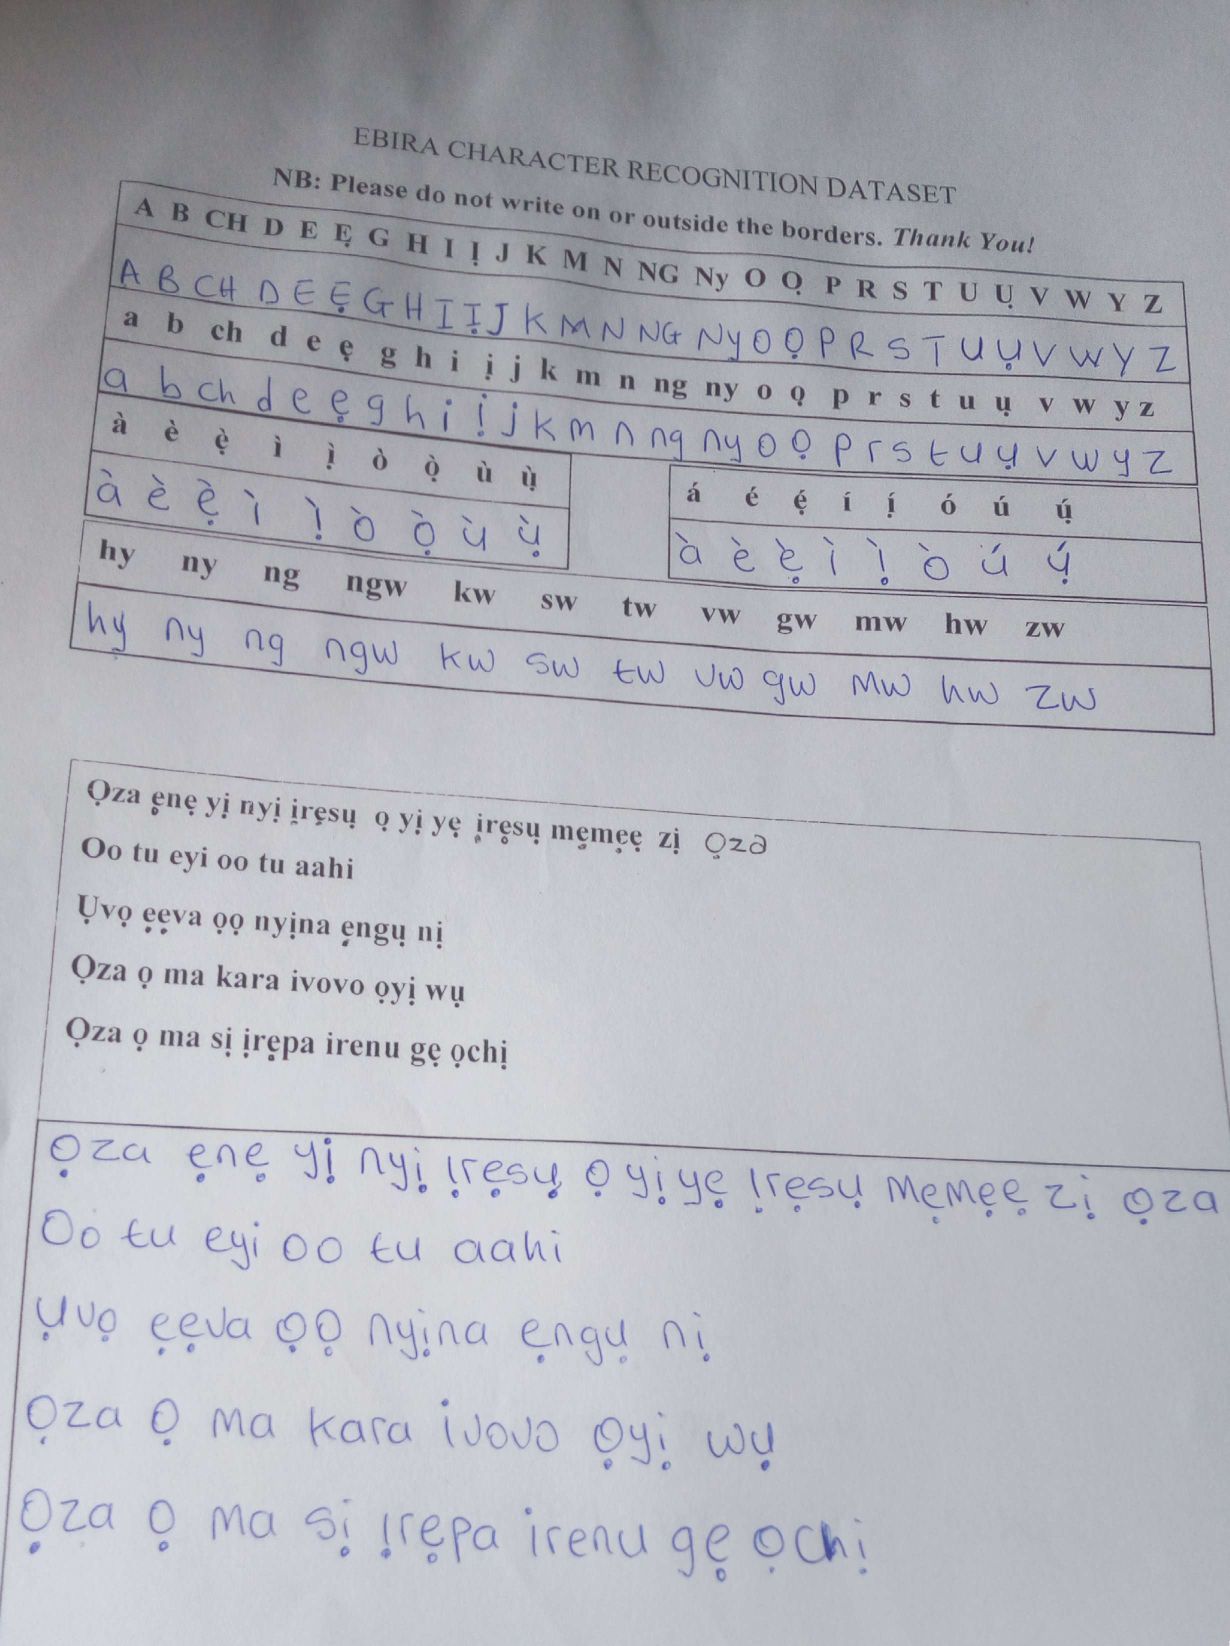 EBIRA CHARACTER RECOGNITION DATASET
NB: Please do not write on or outside the borders. Thank You!
A B CH D E Ẹ G H I Ị J K M N NG Ny O Ọ P R S T U Ụ V W Y Z
A B CH D E Ẹ G H I Ị J K M N NG Ny O Ọ P R S T U Ụ V W Y Z
a b ch d e ẹ g h i ị j k m n ng ny o ọ p r s t u ụ v w y z
a b ch d e ẹ g h i ị j k m n ng ny o ọ p r s t u ụ v w y z
à è ẹ̀ ì ị̀ ò ọ̀ ù ụ̀
à è ẹ̀ ì ị̀ ò ọ̀ ù ụ̀
á é ẹ́ í ị́ ó ú ụ́
à è ẹ̀ ì ị̀ ò ú ụ́
hy ny ng ngw kw sw tw vw gw mw hw zw
hy ny ng ngw kw sw tw vw gw mw hw zw
Ọza ẹnẹ yị nyị ịrẹsụ ọ yị yẹ ịrẹsụ mẹmẹẹ zị ọza
Oo tu eyi oo tu aahi
Ụvọ ẹẹva ọọ nyịna ẹngụ nị
Ọza ọ ma kara ivovo ọyị wụ
Ọza ọ ma sị ịrẹpa irenu gẹ ọchị
Ọza ẹnẹ yị nyị ịrẹsụ ọ yị yẹ ịrẹsụ mẹmẹẹ zị ọza
Oo tu eyi oo tu aahi
Ụvọ ẹẹva ọọ nyịna ẹngụ nị
Ọza ọ ma kara ivovo ọyị wụ
Ọza ọ ma sị ịrẹpa irenu gẹ ọchị